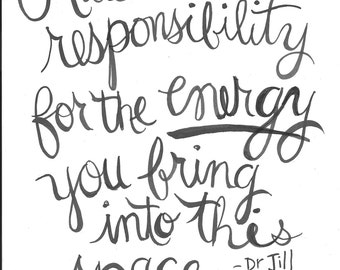 responsibility
for the energy
you bring
into this
space -Dr Jill